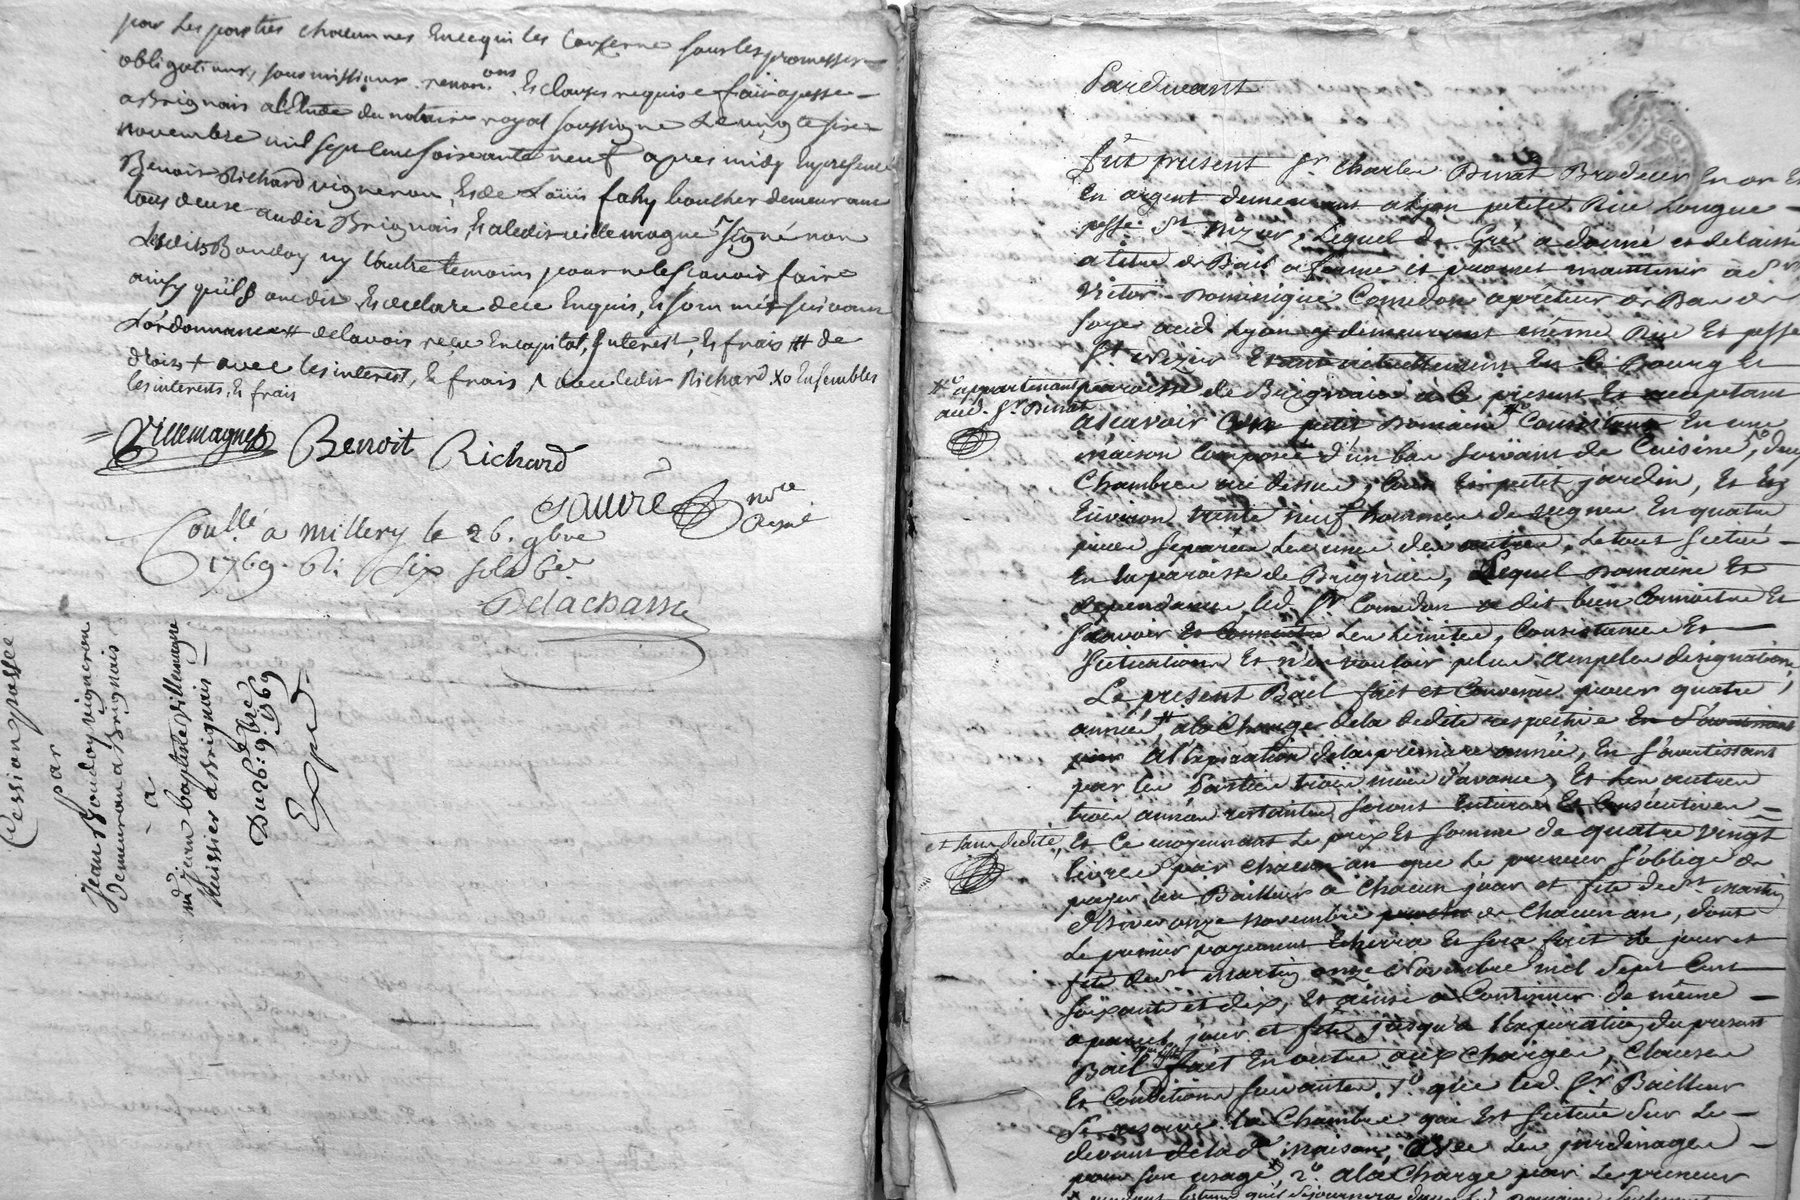 par les parties chacunnes en ce qui les concerne sous les promesses
obligations, soumissions renon ons et clauses requise fait et passé
a Brignais a l'Etude du notaire royal soussigné le vingt six
novembre mil sept cent soixante neuf apres midy en presence
Benoit Richard vigneron, et de Loüis fahy boucher demeurant
tous deux audit Brignais, et a ledit villemagne signé non
ledit Bonday ny l'autre temoins pour ne le sçavoir faire
ainsy qu'ils ont dit et declare de ce enquis, et sommés suivant
L'ordonnance # de lavoir reçu en capital, Interest, et frais # de
droits + avec les interest, et frais dudit Richard Xo Ensembles
les interests, et frais
Villemagne Benoit Richard
Sauvre nore Royal
Coullé a Millery le 26. 9bre
1769. six sols
Delachasse
Cession passée
par
Jean Bonday vigneron
demeurant a Brignais
à
md Jean baptiste villemagne
huissier a Brignais
Du 26: 9bre 1769
Exped
Pardevant
fût present Sr. Charles Binat Brodeur en or et
en argent demeurant a Lyon petite Rue Longue
psse St. Nizier, lequel de gré a donné et delaissé
a titre de Bail a ferme et promet maintenir à Sr
Victor Dominique Comedon apréteur de Bas de
soye aud. Lyon y demeurant même Rue et psse
St. Nizier et actuellement en le Bourg et
paroisse de Brignais a ce present et acceptant
#o appartenant
aud. Sr. Binat
ascavoir petit Domaine #o Consistant en une
maison composée d'un bas servant de Cuisine, deux
Chambres au dessus, Cour et petit jardin, et
Environ trente neuf hommes de vigne en quatre
pieces separées les unes des autres, le tout situé
en la paroisse de Brignais, lequel Domaine et
dependances led. Sr. Comedon a dit bien connoitre et
sçavoir et connoitre les limites, consistance et
situations et n'en vouloir plus ample designation,
Le present Bail fait et Convenu pour quatre
années, # a la Charge de la dedite respective
a l'expiration de la premiere année, en s'avertissant
par les Parties trois mois d'avance, et les autres
trois années restantes seront entieres et consecutives
et sans dedite,
Et Ce moyennant le prix et somme de quatre vingt
livres par chacun an que le preneur s'oblige de
payer au Bailleur a chacun jour et fête de St. Martin
d'hiver onze Novembre de chacun an, dont
le premier payement echerra et sera fait le jour et
fête de St. Martin onze Novembre mil sept cent
soixante et dix, et ainsi a Continuer de même
a pareil jour et fête jusqu'a l'expiration du present
Bail fait en outre aux charges, clauses
et Conditions suivantes. 1o. que led. Sr. Bailleur
se reserve la Chambre qui est située sur le
devant de lad. maison, avec les jardinages
pour son usage # 2o. a la Charge par le preneur